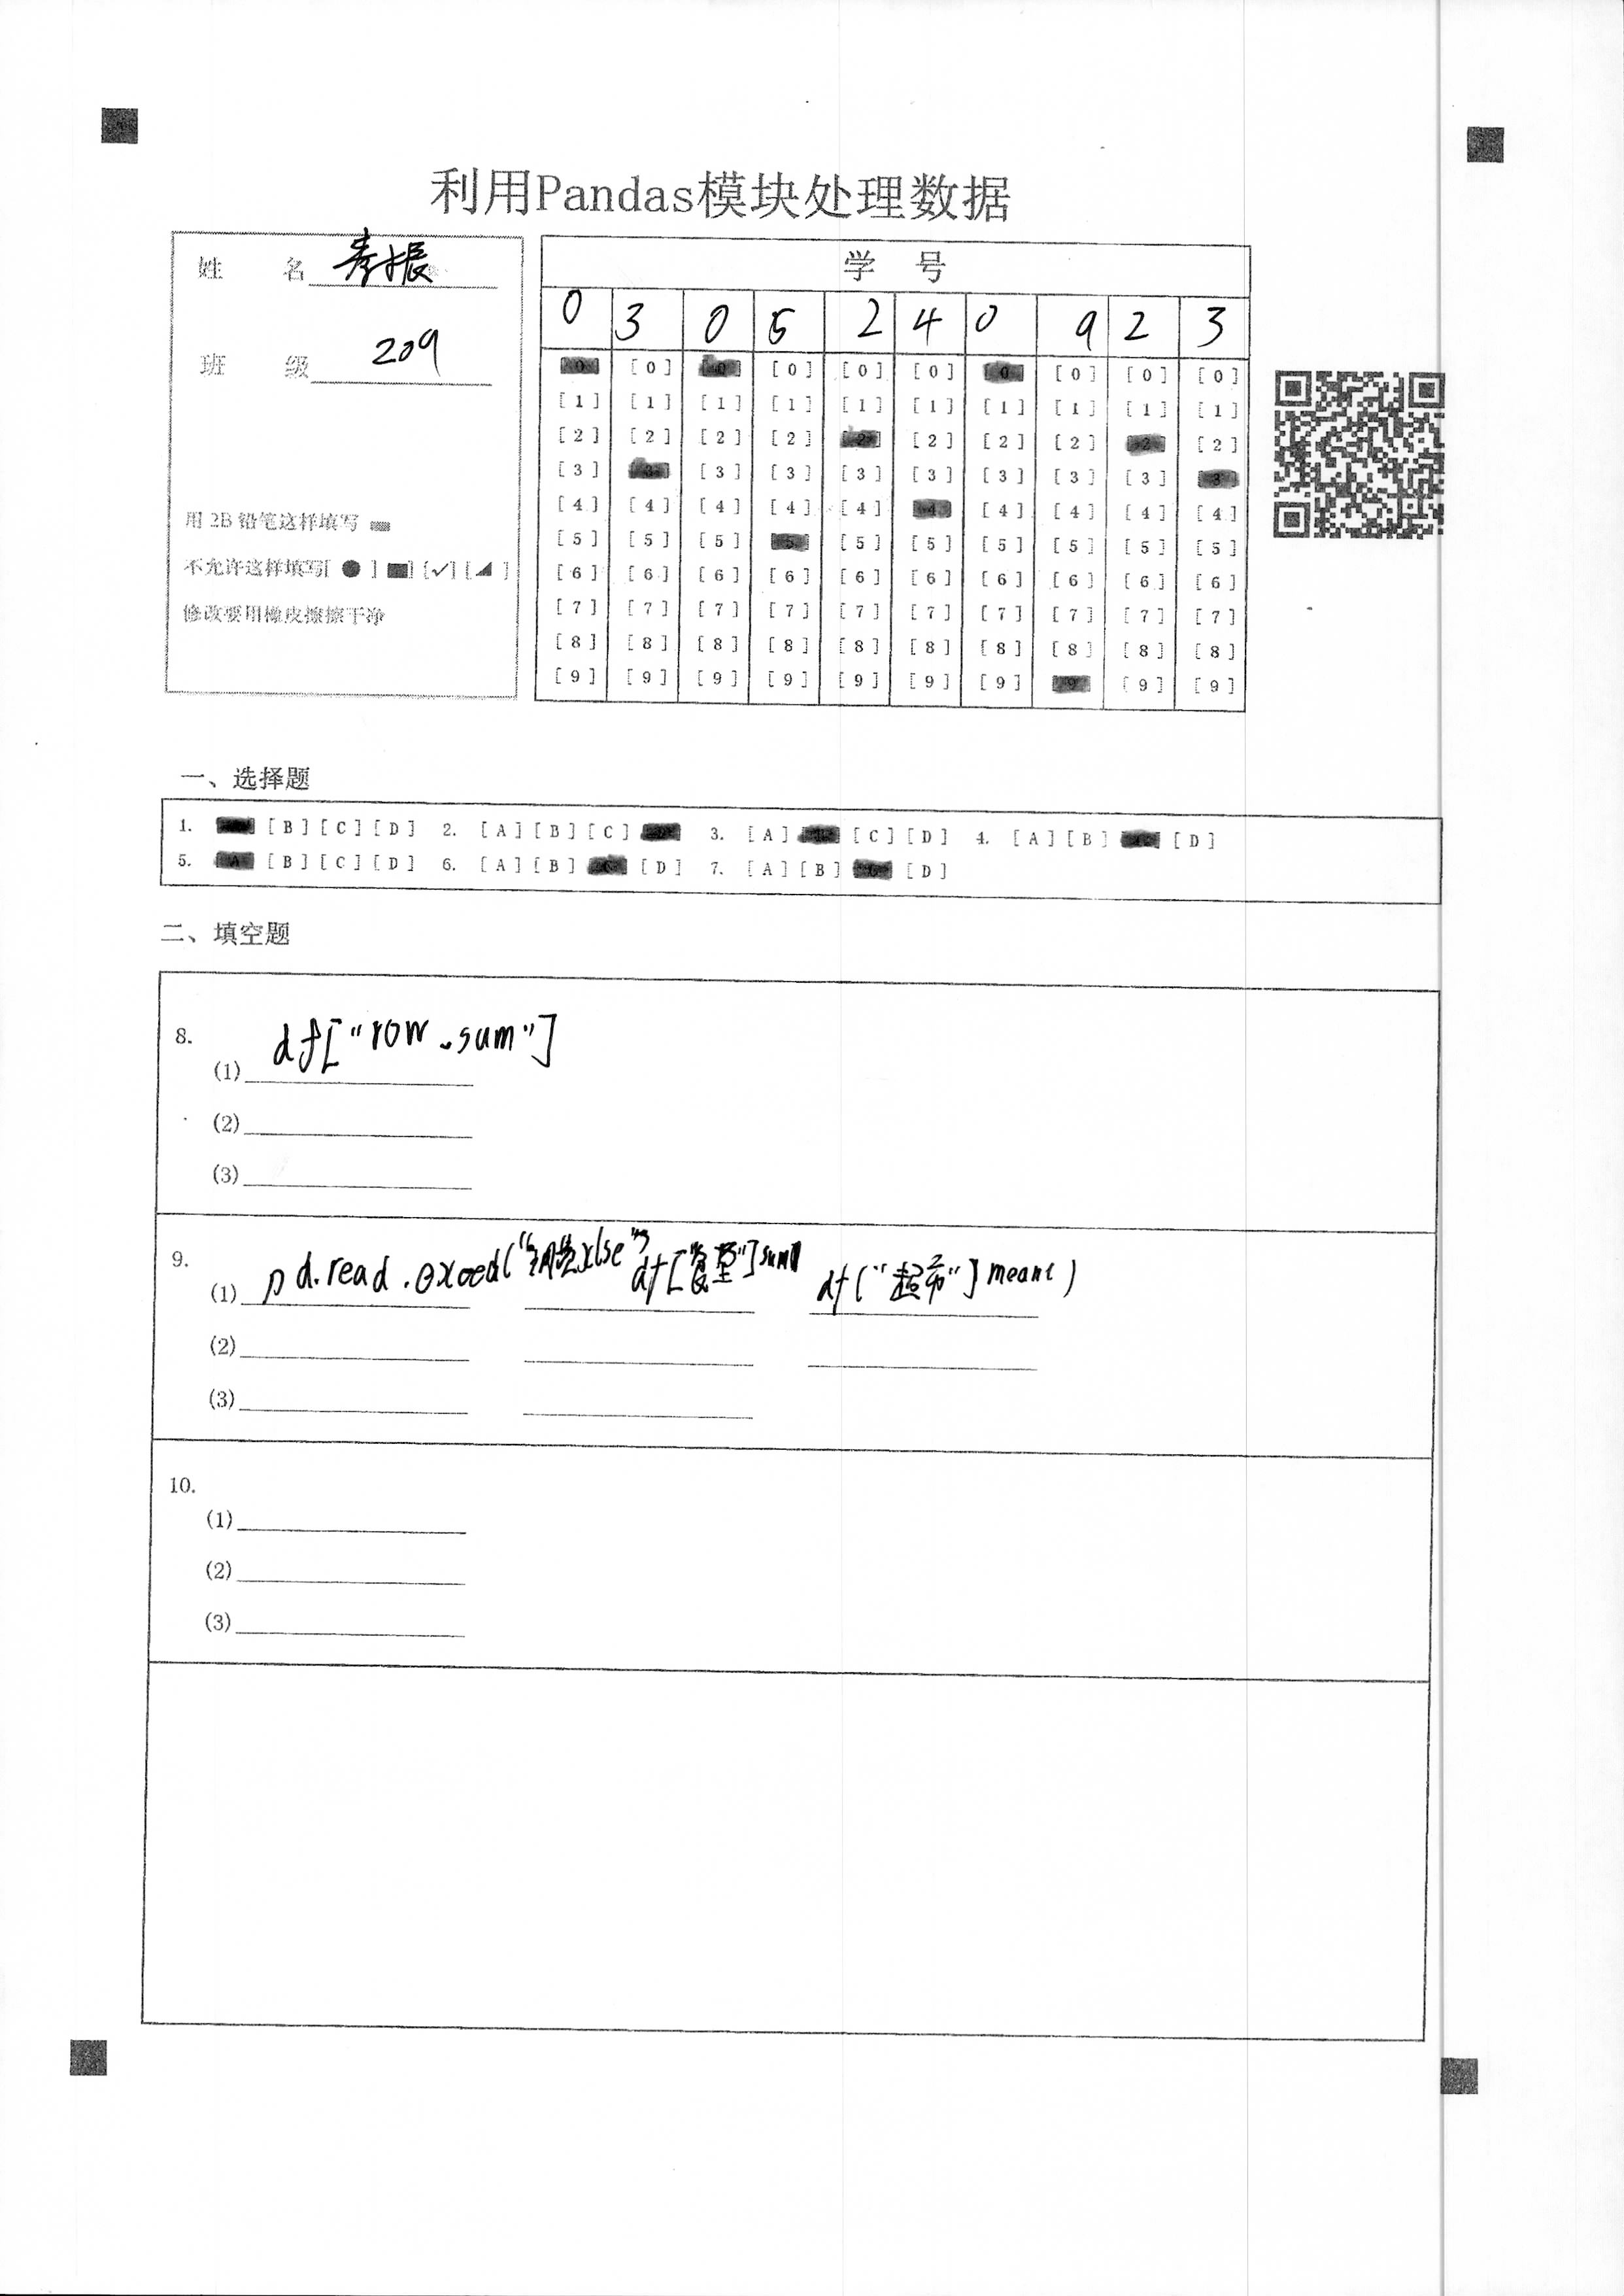 利用Pandas模块处理数据
姓 名 振
班 级 209
用 2B 铅笔这样填写
不允许这样填写[ ● ] [■] [✓] [◢ ]
修改要用橡皮擦擦干净
学 号
0 3 0 5 2 4 0 9 2 3
[0] [0] [0] [0] [0] [0] [0] [0] [0] [0]
[1] [1] [1] [1] [1] [1] [1] [1] [1] [1]
[2] [2] [2] [2] [2] [2] [2] [2] [2] [2]
[3] [3] [3] [3] [3] [3] [3] [3] [3] [3]
[4] [4] [4] [4] [4] [4] [4] [4] [4] [4]
[5] [5] [5] [5] [5] [5] [5] [5] [5] [5]
[6] [6] [6] [6] [6] [6] [6] [6] [6] [6]
[7] [7] [7] [7] [7] [7] [7] [7] [7] [7]
[8] [8] [8] [8] [8] [8] [8] [8] [8] [8]
[9] [9] [9] [9] [9] [9] [9] [9] [9] [9]
一、选择题
1. [B] [C] [D] 2. [A] [B] [C] 3. [A] [C] [D] 4. [A] [B] [D]
5. [A] [B] [C] [D] 6. [A] [B] [C] [D] 7. [A] [B] [D]
二、填空题
8.
(1) df["row_sum"]
(2)
(3)
9.
(1) pd.read.exced(" xlse") df["食堂"]sum() df("超市"]mean()
(2)
(3)
10.
(1)
(2)
(3)